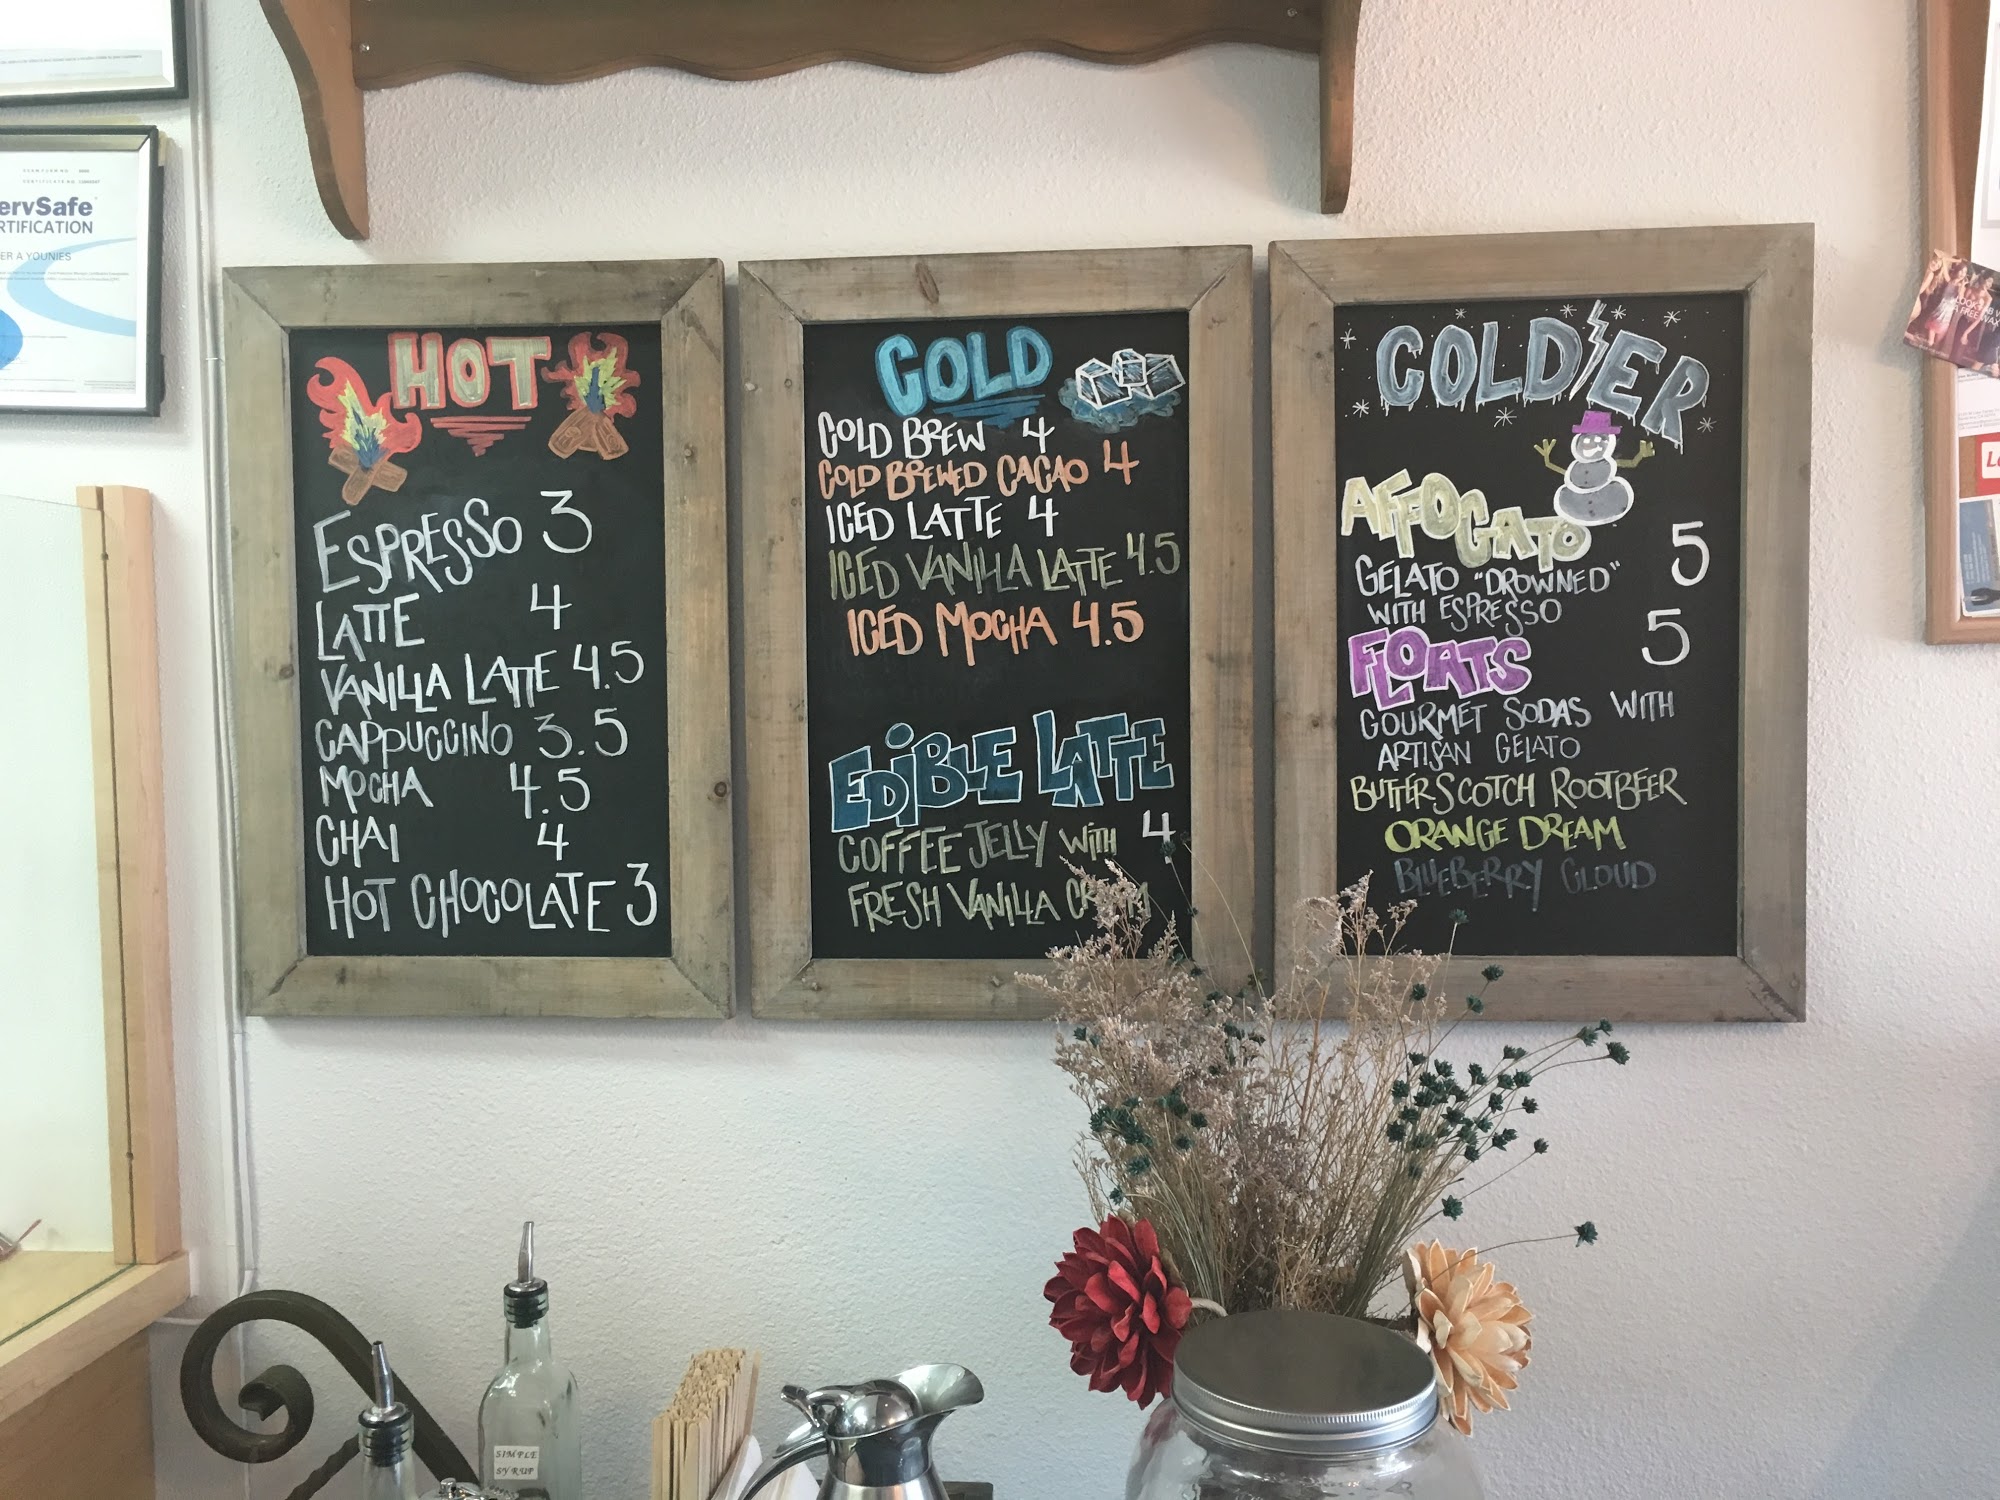 ervSafe
RTIFICATION
ER A YOUNIES
HOT
ESPRESSO 3
LATTE 4
VANILLA LATTE 4.5
CAPPUCCINO 3.5
MOCHA 4.5
CHAI 4
HOT CHOCOLATE 3
COLD
COLD BREW 4
COLD BREWED CACAO 4
ICED LATTE 4
ICED VANILLA LATTE 4.5
ICED MOCHA 4.5
EDiBLE LATTE
COFFEE JELLY WITH 4
FRESH VANILLA
COLDER
AFFOGATO 5
GELATO "DROWNED"
WITH ESPRESSO
FLOATS 5
GOURMET SODAS WITH
ARTISAN GELATO
BUTTERSCOTCH ROOTBEER
ORANGE DREAM
BLUEBERRY CLOUD
SIMPLE
SYRUP